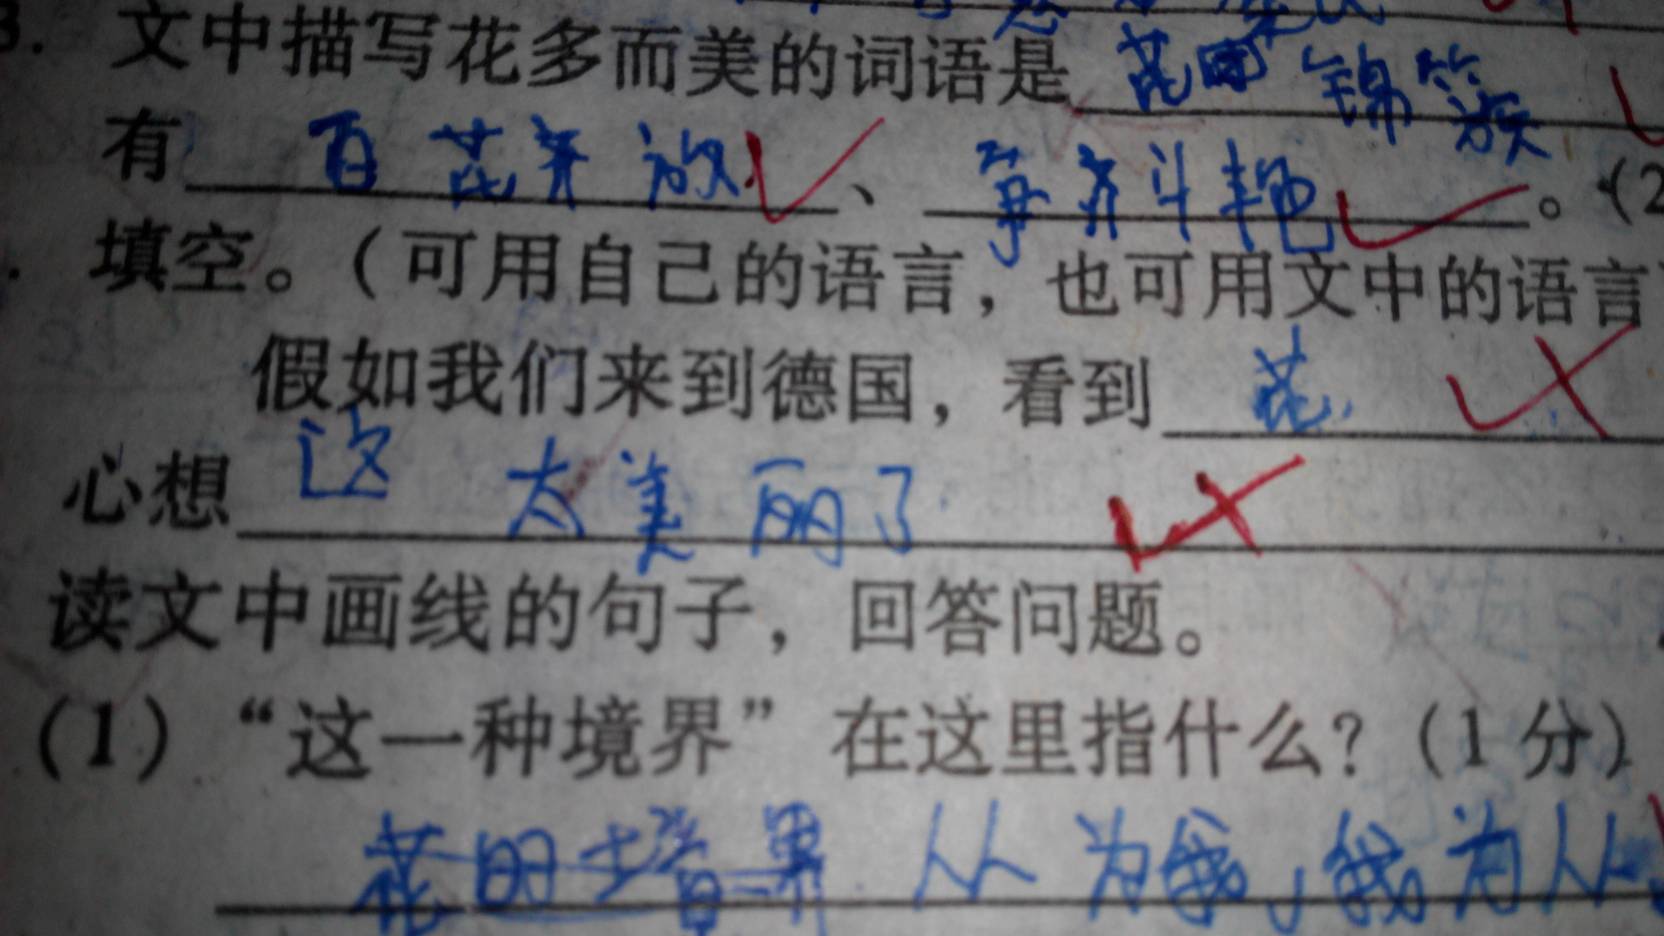 3. 文中描写花多而美的词语是 花团锦簇
有 百花齐放、争齐斗艳。(2
填空。(可用自己的语言，也可用文中的语言
假如我们来到德国，看到 花，
心想 这太美丽了
读文中画线的句子，回答问题。
(1) “这一种境界”在这里指什么?(1分)
花的境界 从为我，我为从